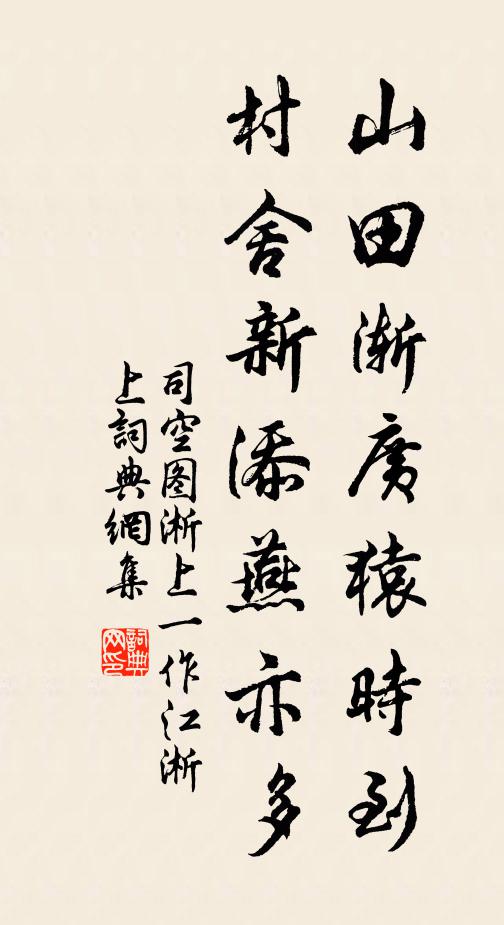 山田渐廣猿時到
村舍新添燕亦多
司空图淅上一作江淅
上詞典網集
詞典网印